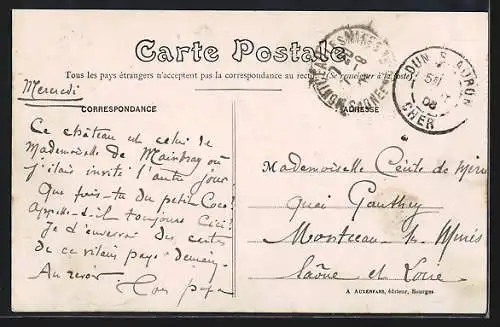 Carte Postale
Tous les pays étrangers n'acceptent pas la correspondance au recto. (Se renseigner à la poste)
Mercredi
CORRESPONDANCE
ADRESSE
Ce château est celui de
Mademoiselle De où
j'étais invité l'autre jour
Que fais-tu du petit Coco?
Appelle-t-il toujours Cici?
Je t'enverrai des cartes
de ce vilain pays demain.
Au revoir
Ton papa
Mademoiselle Cécile de
quai Gauthey
Montceau les Mines
Saône et Loire
A AUXENFANS, éditeur, Bourges
DUN S. AURON
08
CHER
MONTCEAU-LES-MINES